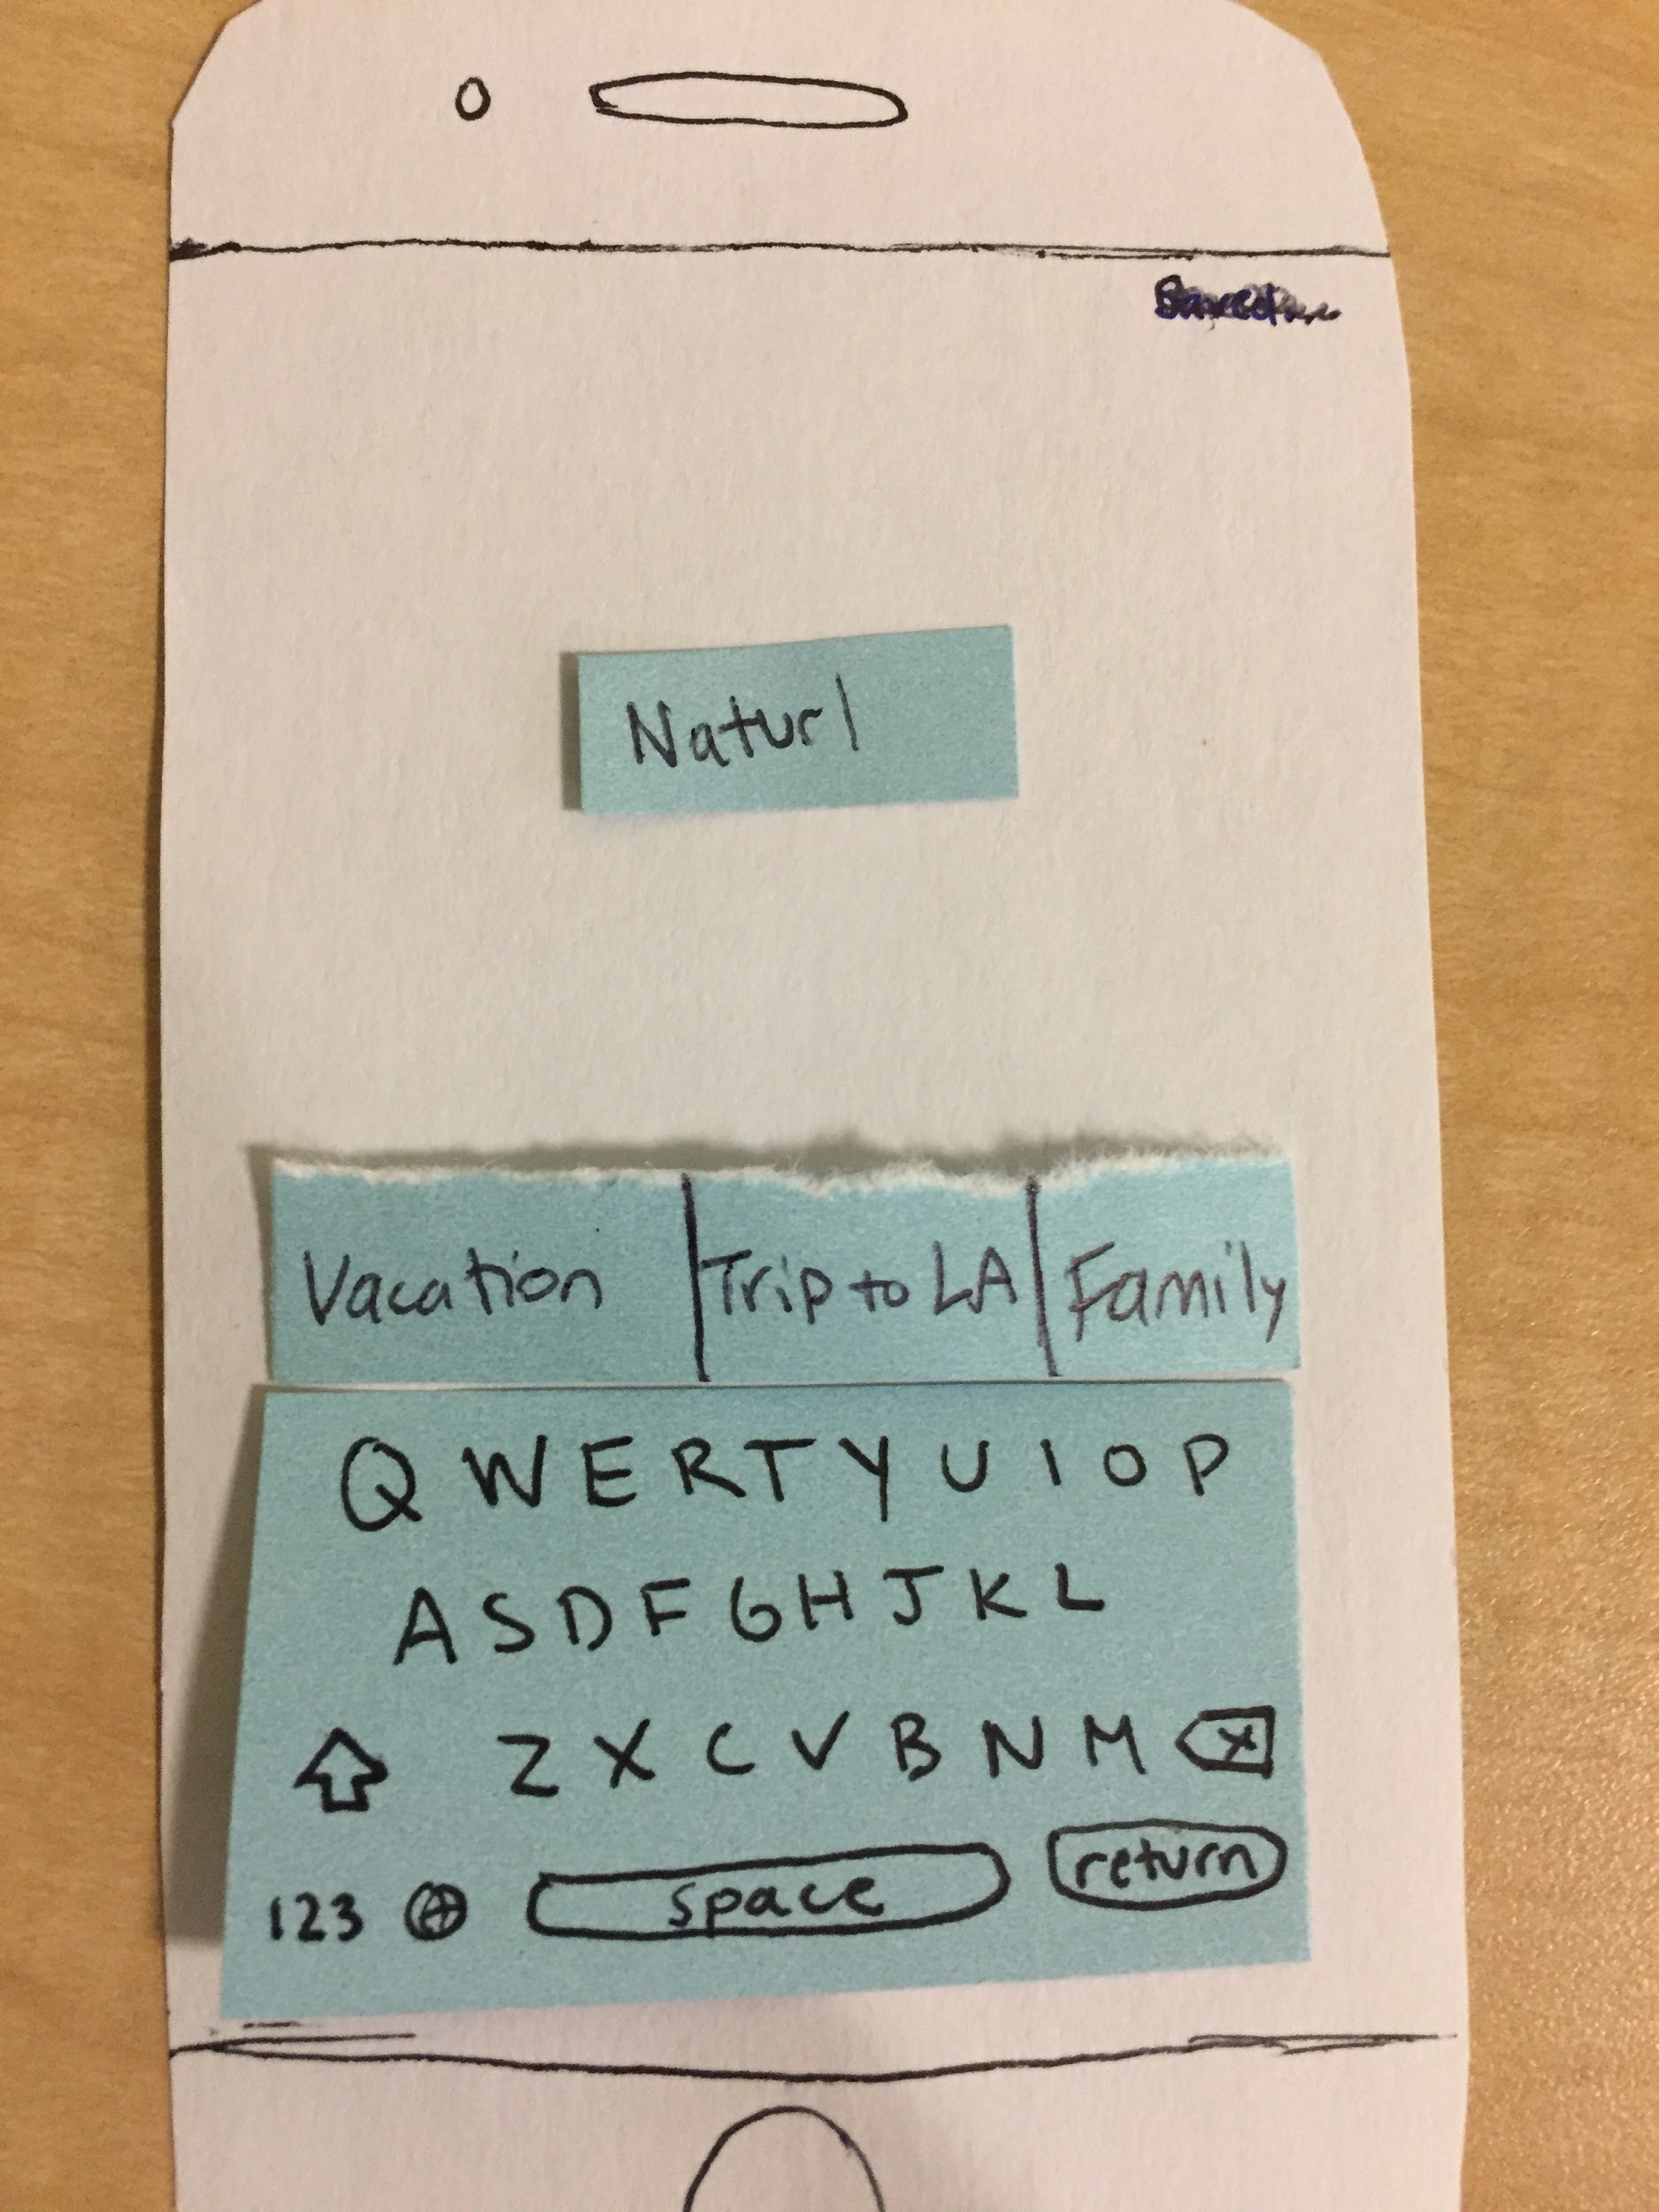 Natur|
Vacation | Trip to LA | Family
Q W E R T Y U I O P
A S D F G H J K L
Z X C V B N M X
123 space return